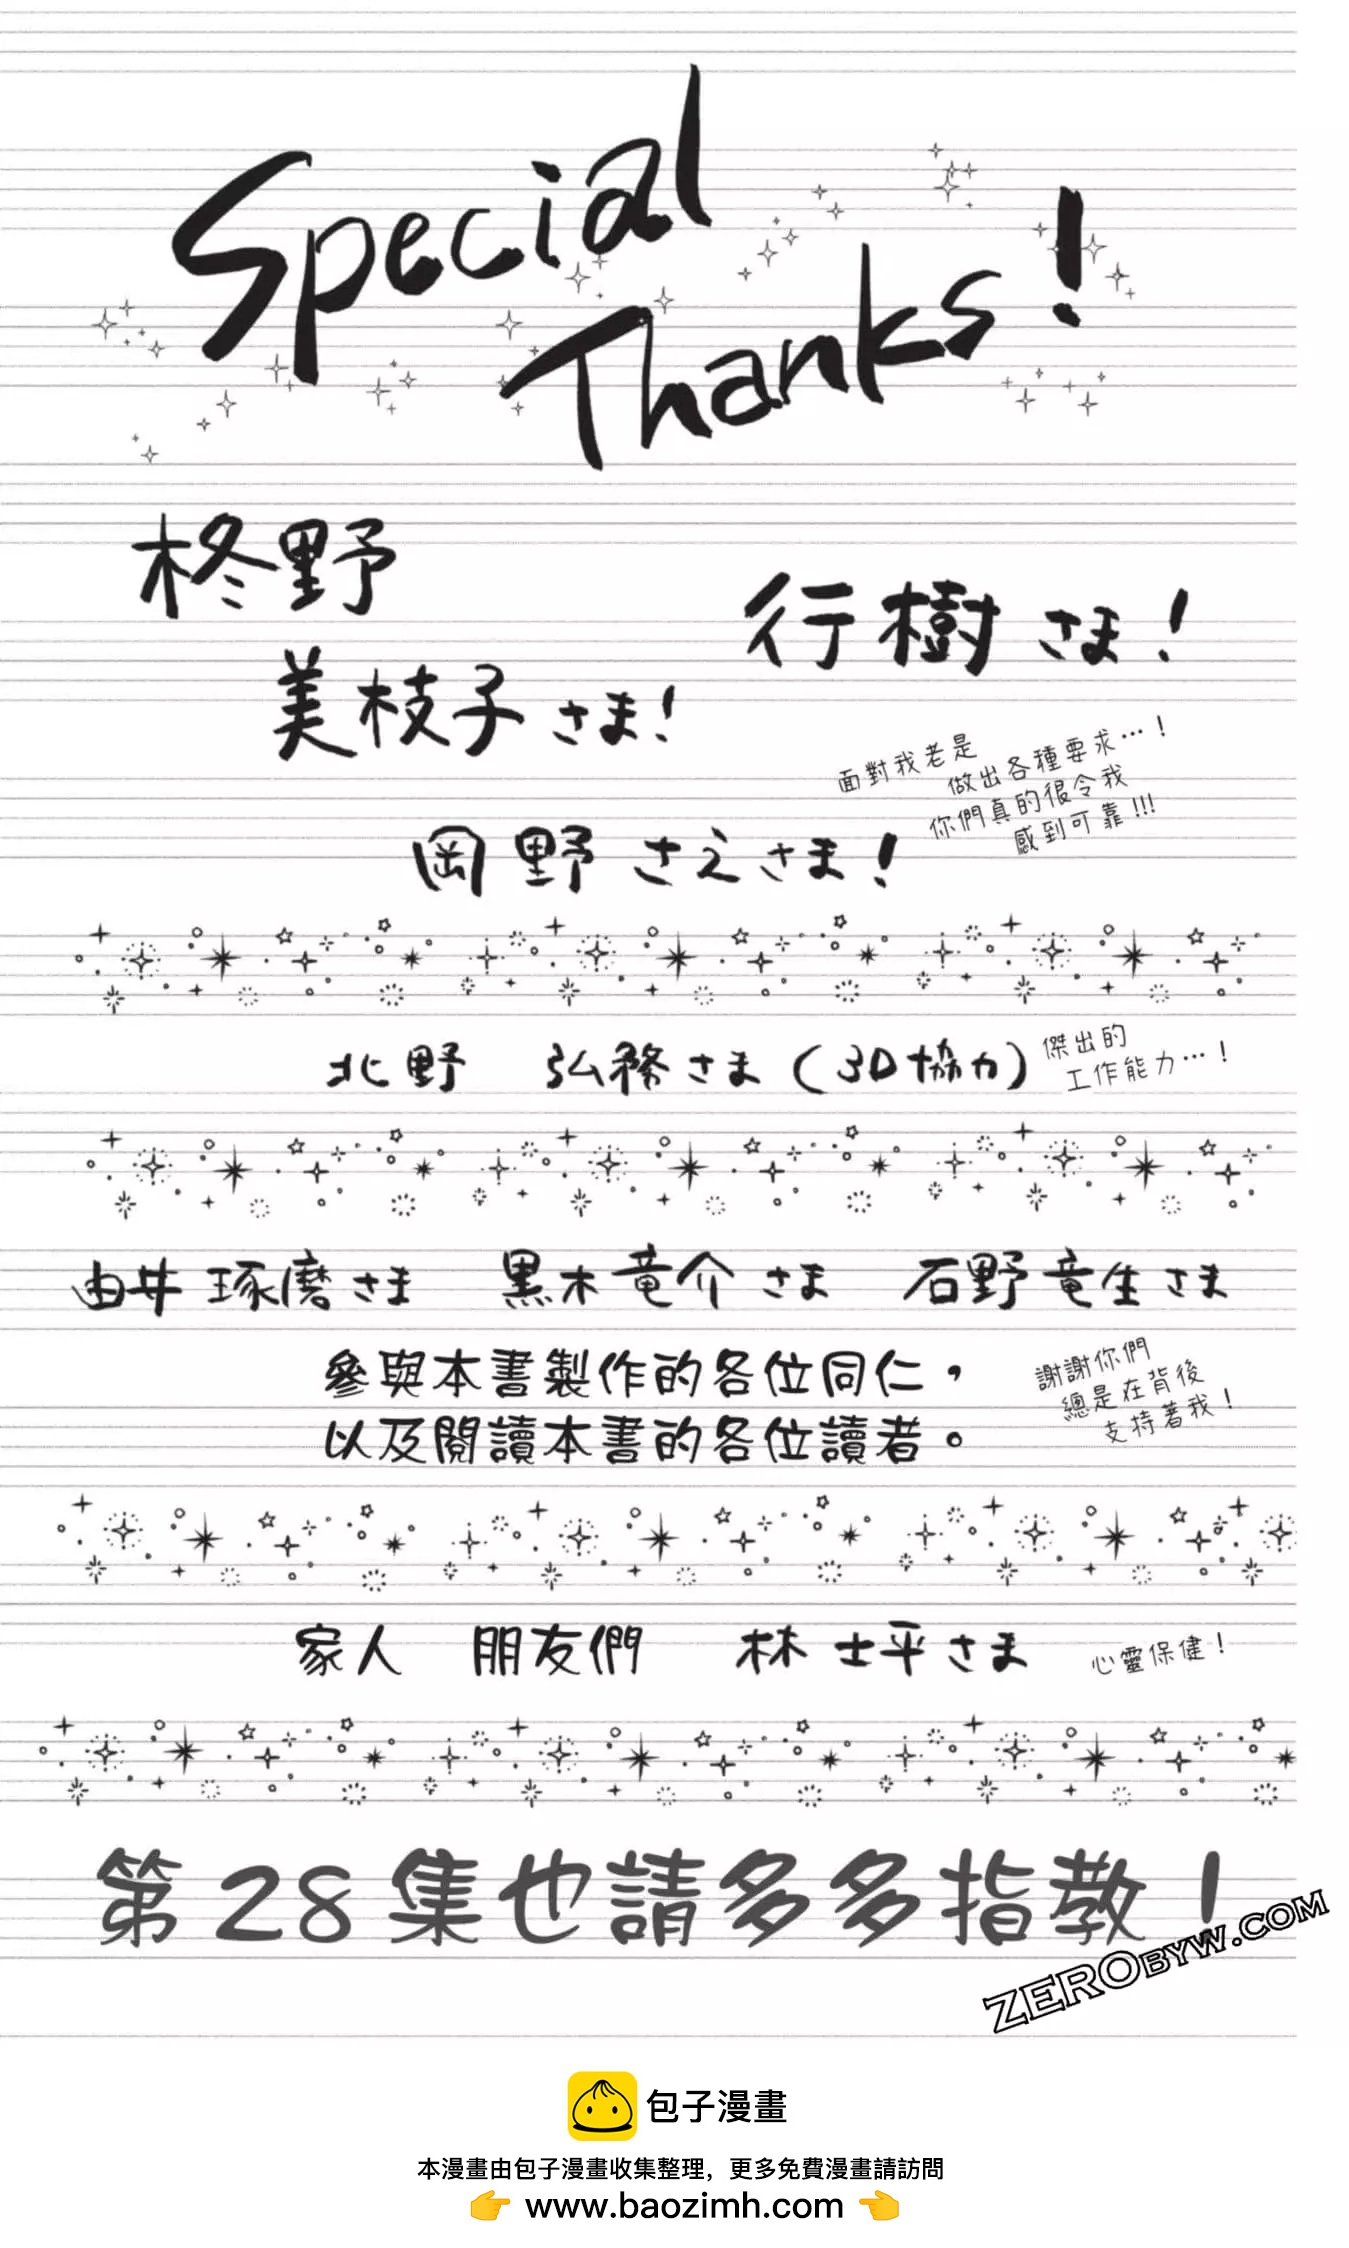 Special
Thanks!
柊野
美枝子さま!
行樹さま!
面對我老是
做出各種要求…!
你們真的很令我
感到可靠!!!
岡野さえさま!
北野 弘務さま(3D協力)
傑出的
工作能力…!
由井琢磨さま 黒木竜介さま 石野竜生さま
參與本書製作的各位同仁，
以及閱讀本書的各位讀者。
謝謝你們
總是在背後
支持著我!
家人 朋友們 林士平さま
心靈保健!
第28集也請多多指教!
ZEROBYW.COM
包子漫畫
本漫畫由包子漫畫收集整理，更多免費漫畫請訪問
👉 www.baozimh.com 👈